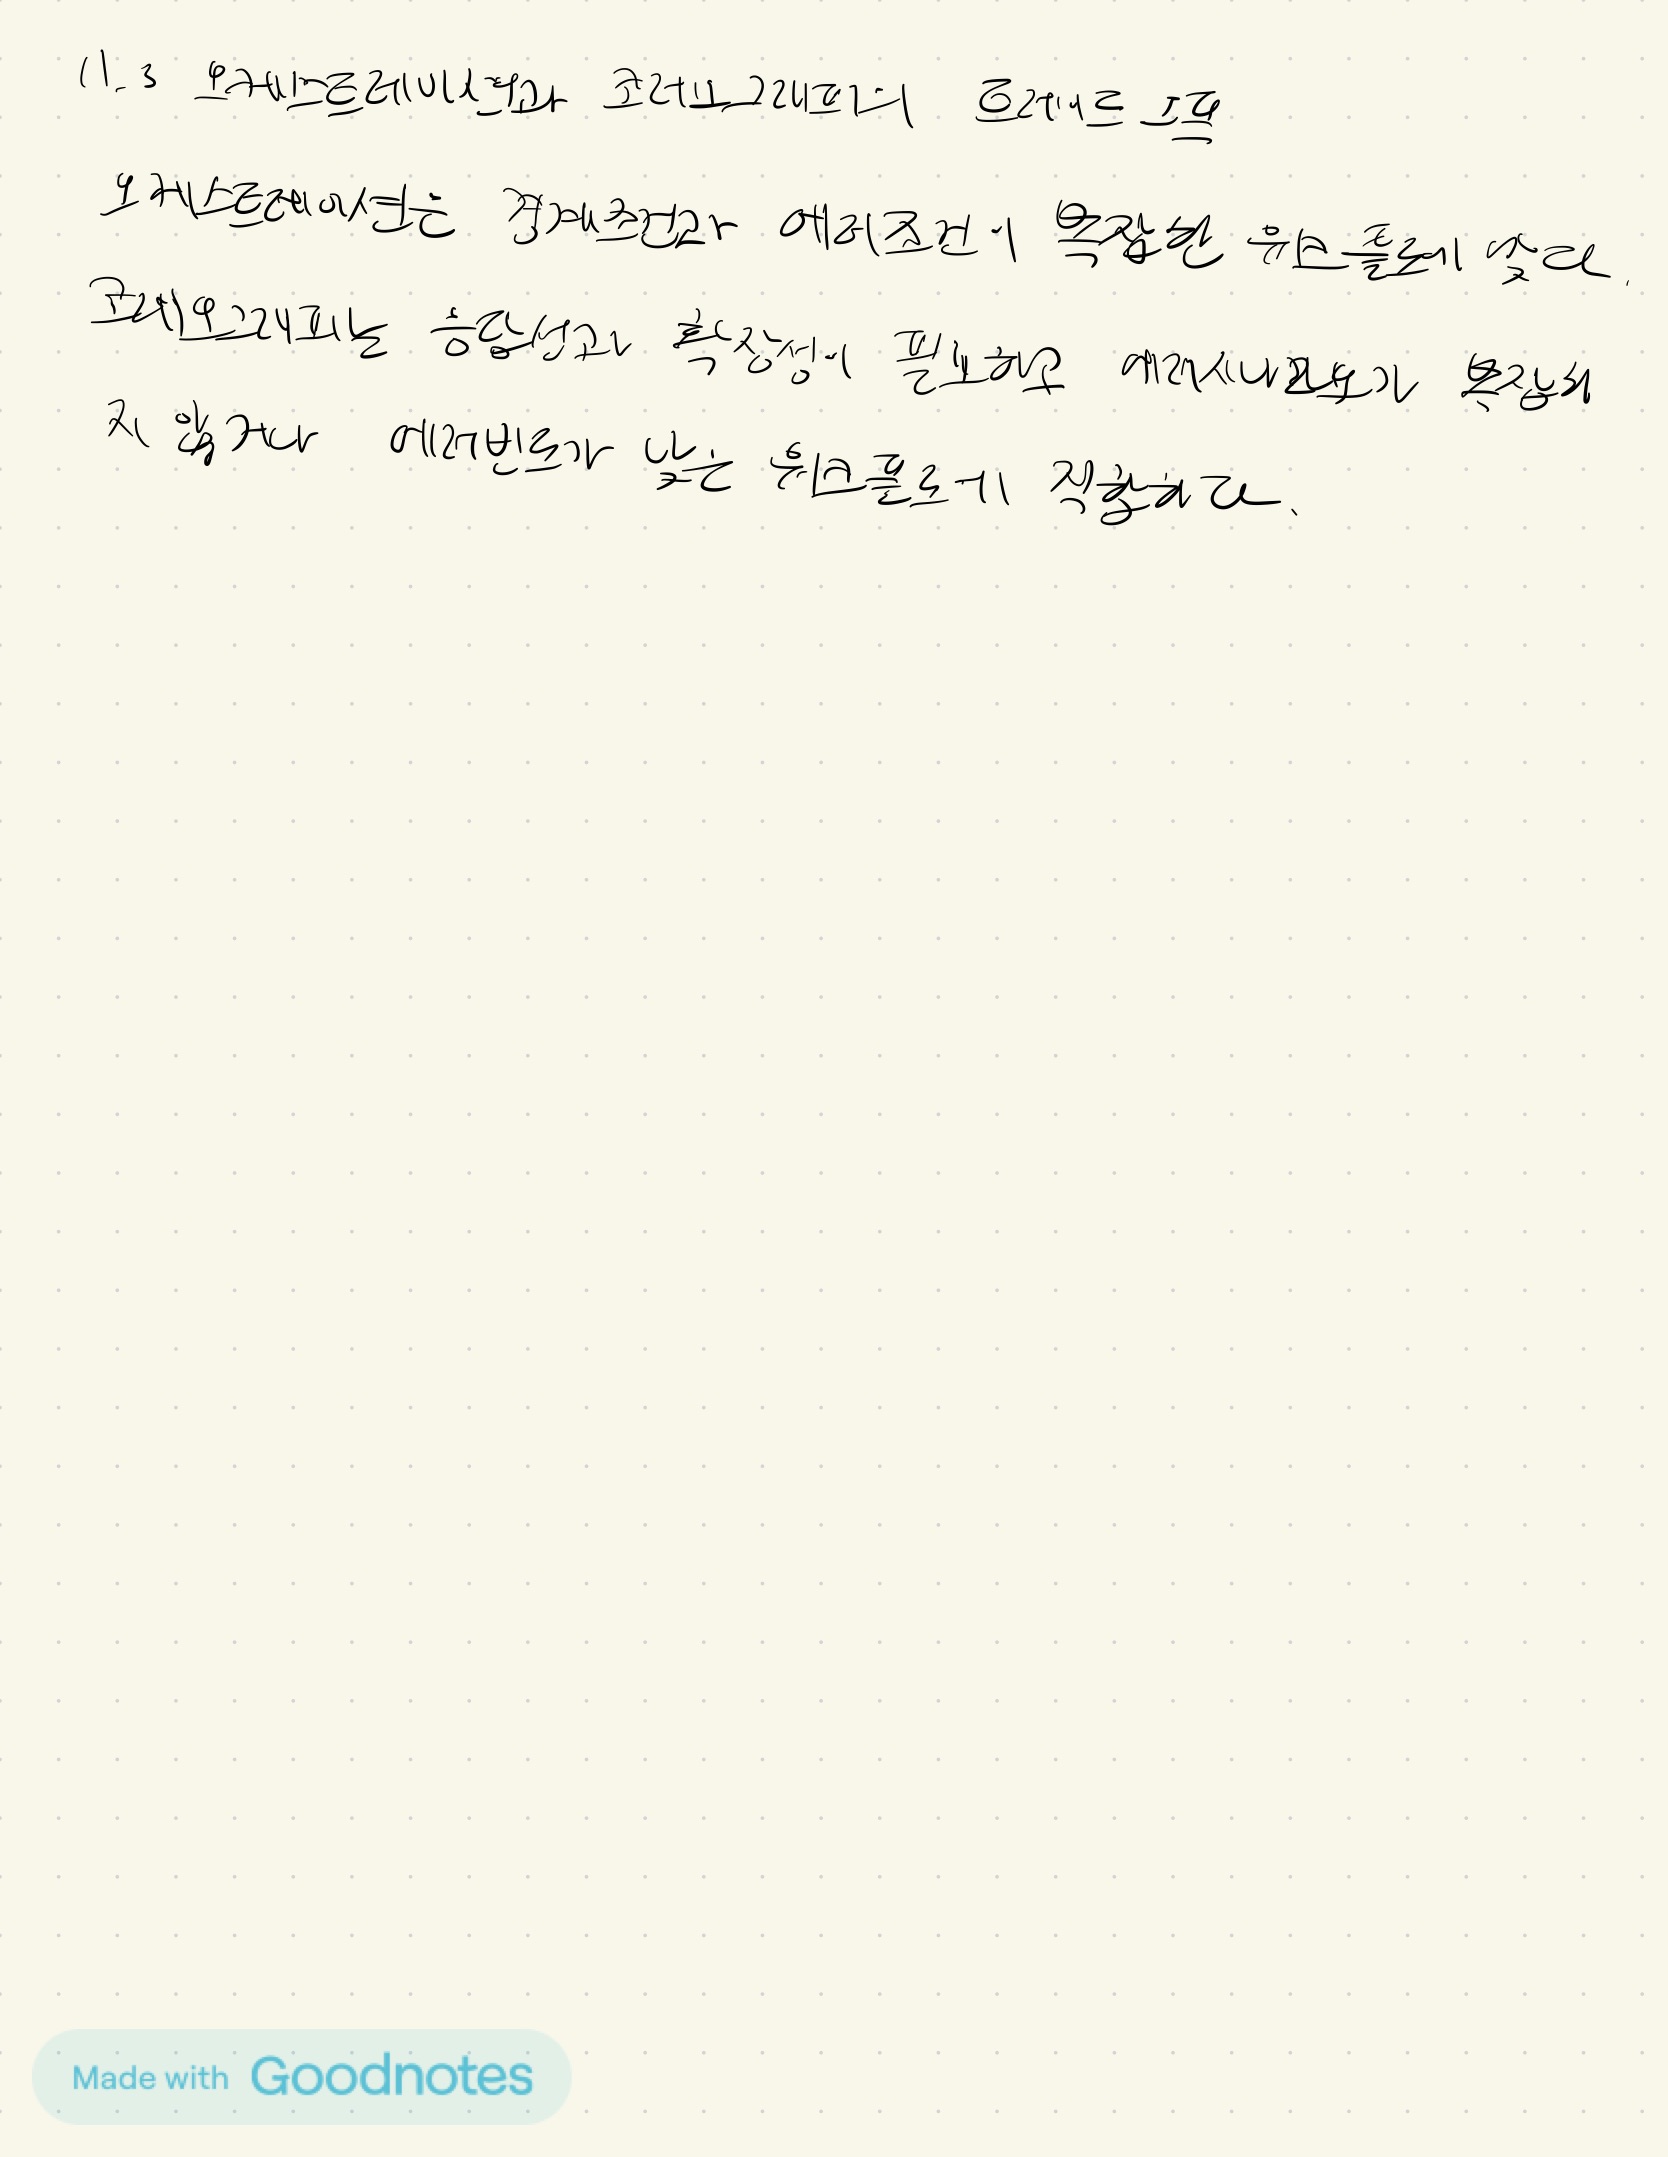 11.3 오케스트레이션과 코레오그래피의 트레이드 오프
오케스트레이션은 경계조건과 에러조건이 복잡한 워크플로에 맞다.
코레오그래피는 응답성과 확장성이 필요하고 에러시나리오가 복잡하
지 않거나 에러빈도가 낮은 워크플로에 적합하다.
Made with Goodnotes